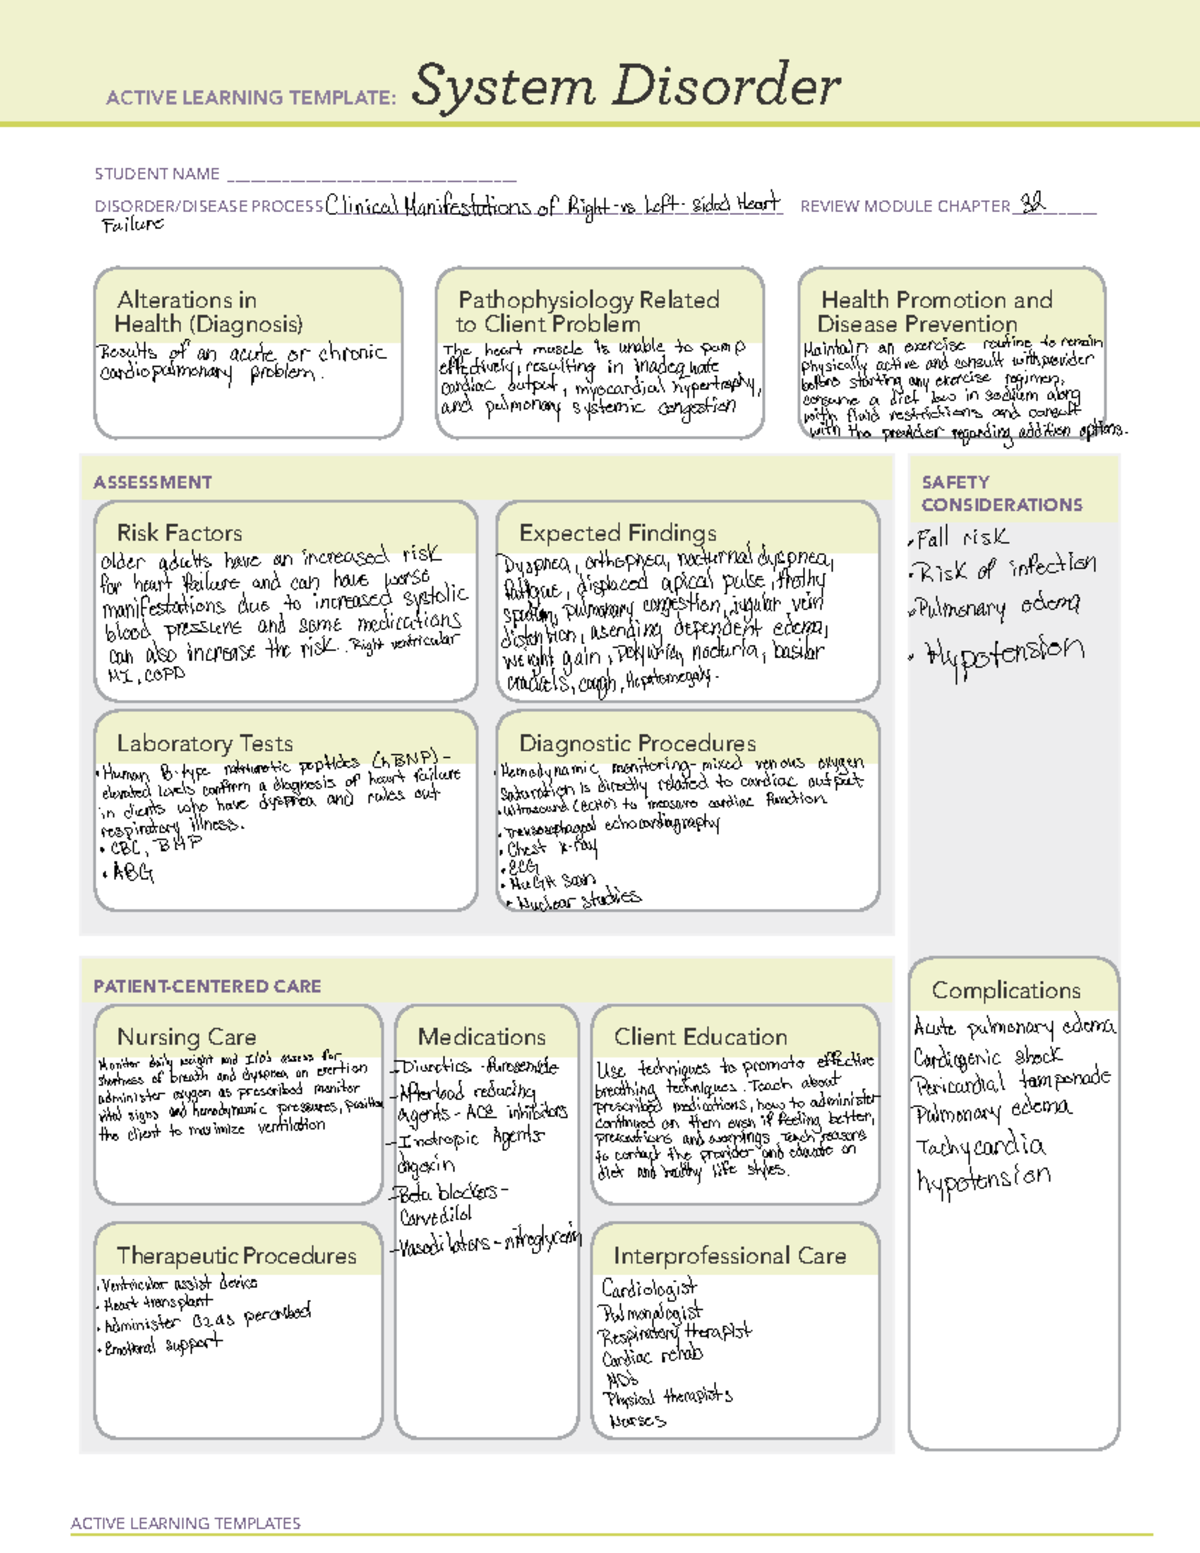 ACTIVE LEARNING TEMPLATE: System Disorder
STUDENT NAME
DISORDER/DISEASE PROCESS Clinical Manifestations of Right-vs Left-sided Heart
Failure
REVIEW MODULE CHAPTER 32
Alterations in
Health (Diagnosis)
Results of an acute or chronic
cardiopulmonary problem.
Pathophysiology Related
to Client Problem
The heart muscle is unable to pump
effectively, resulting in inadequate
cardiac output, myocardial hypertrophy,
and pulmonary systemic congestion
Health Promotion and
Disease Prevention
Maintain an exercise routine to remain
physically active and consult with provider
before starting any exercise regimen,
consume a diet low in sodium along
with fluid restrictions and consult
with the provider regarding addition options.
ASSESSMENT
Risk Factors
Older adults have an increased risk
for heart failure and can have worse
manifestations due to increased systolic
blood pressure and some medications
can also increase the risk. Right ventricular
MI, COPD
Expected Findings
Dyspnea, orthopnea, nocturnal dyspnea,
fatigue, displaced apical pulse, frothy
sputum, pulmonary congestion, jugular vein
distention, asending dependent edema,
weight gain, polyuria, nocturia, basilar
crackels, cough, Hepatomegaly.
Laboratory Tests
• Human B-type natriuretic peptides (hBNP) -
elevated levels confirm a diagnosis of heart failure
in clients who have dyspnea and rules out
respiratory illness.
• CBC, BMP
• ABG
Diagnostic Procedures
• Hemodynamic monitoring- mixed venous oxygen
saturation is directly related to cardiac output
• Ultrasound (ECHO) to measure cardiac function
• Transesophageal echocardiography
• Chest x-ray
• ECG
• MUGA scan
• Nuclear studies
SAFETY
CONSIDERATIONS
• Fall risk
• Risk of infection
• Pulmonary edema
• Hypotension
PATIENT-CENTERED CARE
Nursing Care
Monitor daily weight and I/O's assess for
shortness of breath and dyspnea on exertion
administer oxygen as prescribed monitor
vital signs and hemodynamic pressures, position
the client to maximize ventilation
Medications
-Diuretics -furosemide
-Afterload reducing
agents- ACE inhibitors
-Inotropic Agents-
digoxin
-Beta blockers-
Carvedilol
-Vasodilators - nitroglycerin
Client Education
Use techniques to promote effective
breathing techniques. Teach about
prescribed medications, how to administer
continued on them even if feeling better,
precautions and warnings. Teach reasons
to contact the provider and educate on
diet and healthy life styles.
Therapeutic Procedures
• Ventricular assist device
• Heart transplant
• Administer O2 as percribed
• Emotional support
Interprofessional Care
Cardiologist
Pulmonologist
Respiratory therapist
Cardiac rehab
MD's
Physical therapists
Nurses
Complications
Acute pulmonary edema
Cardiogenic shock
Pericardial tamponade
Pulmonary edema
Tachycardia
hypotension
ACTIVE LEARNING TEMPLATES